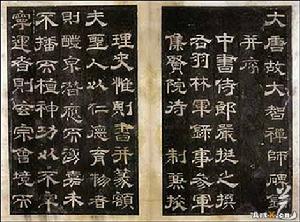 大唐故大智禪師碑銘
并序
中書侍郎嚴挺之撰
右羽林軍錄事參軍
集賢院待制兼校
理史惟則書并篆額
夫聖人以仁德育物者
則醴泉潛應而涌嘉禾
不播而植神功以不宰
靈運者則會宗會境而